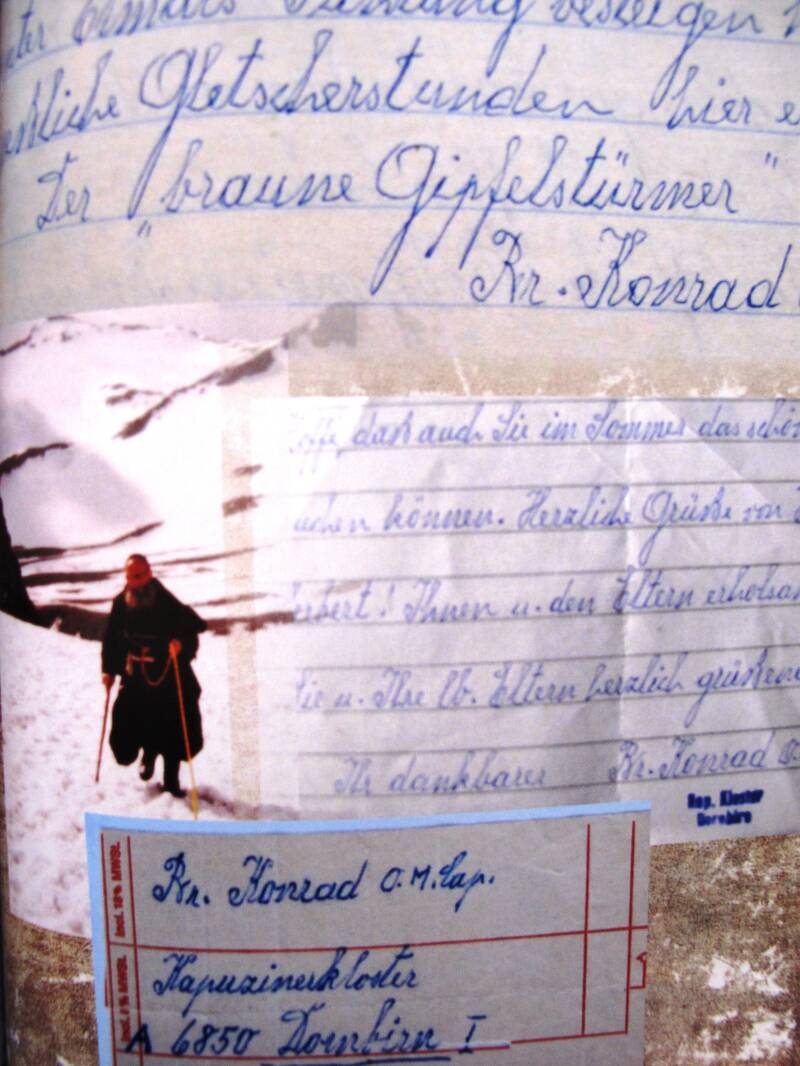 besteigen
Gletscherstunden hier
Der „braune Gipfelstürmer"
Br. Konrad
daß auch Sie im Sommer das schön
können. Herzliche Grüße von
Ihnen u. den Eltern erholsa
Sie u. Ihre lb. Eltern herzlich grüßend
Ihr dankbarer Br. Konrad O.
Kap. Kloster
Dornbirn
Br. Konrad O.M.Cap.
Kapuzinerkloster
A 6850 Dornbirn I
incl. 18% MWSt.
MWSt.